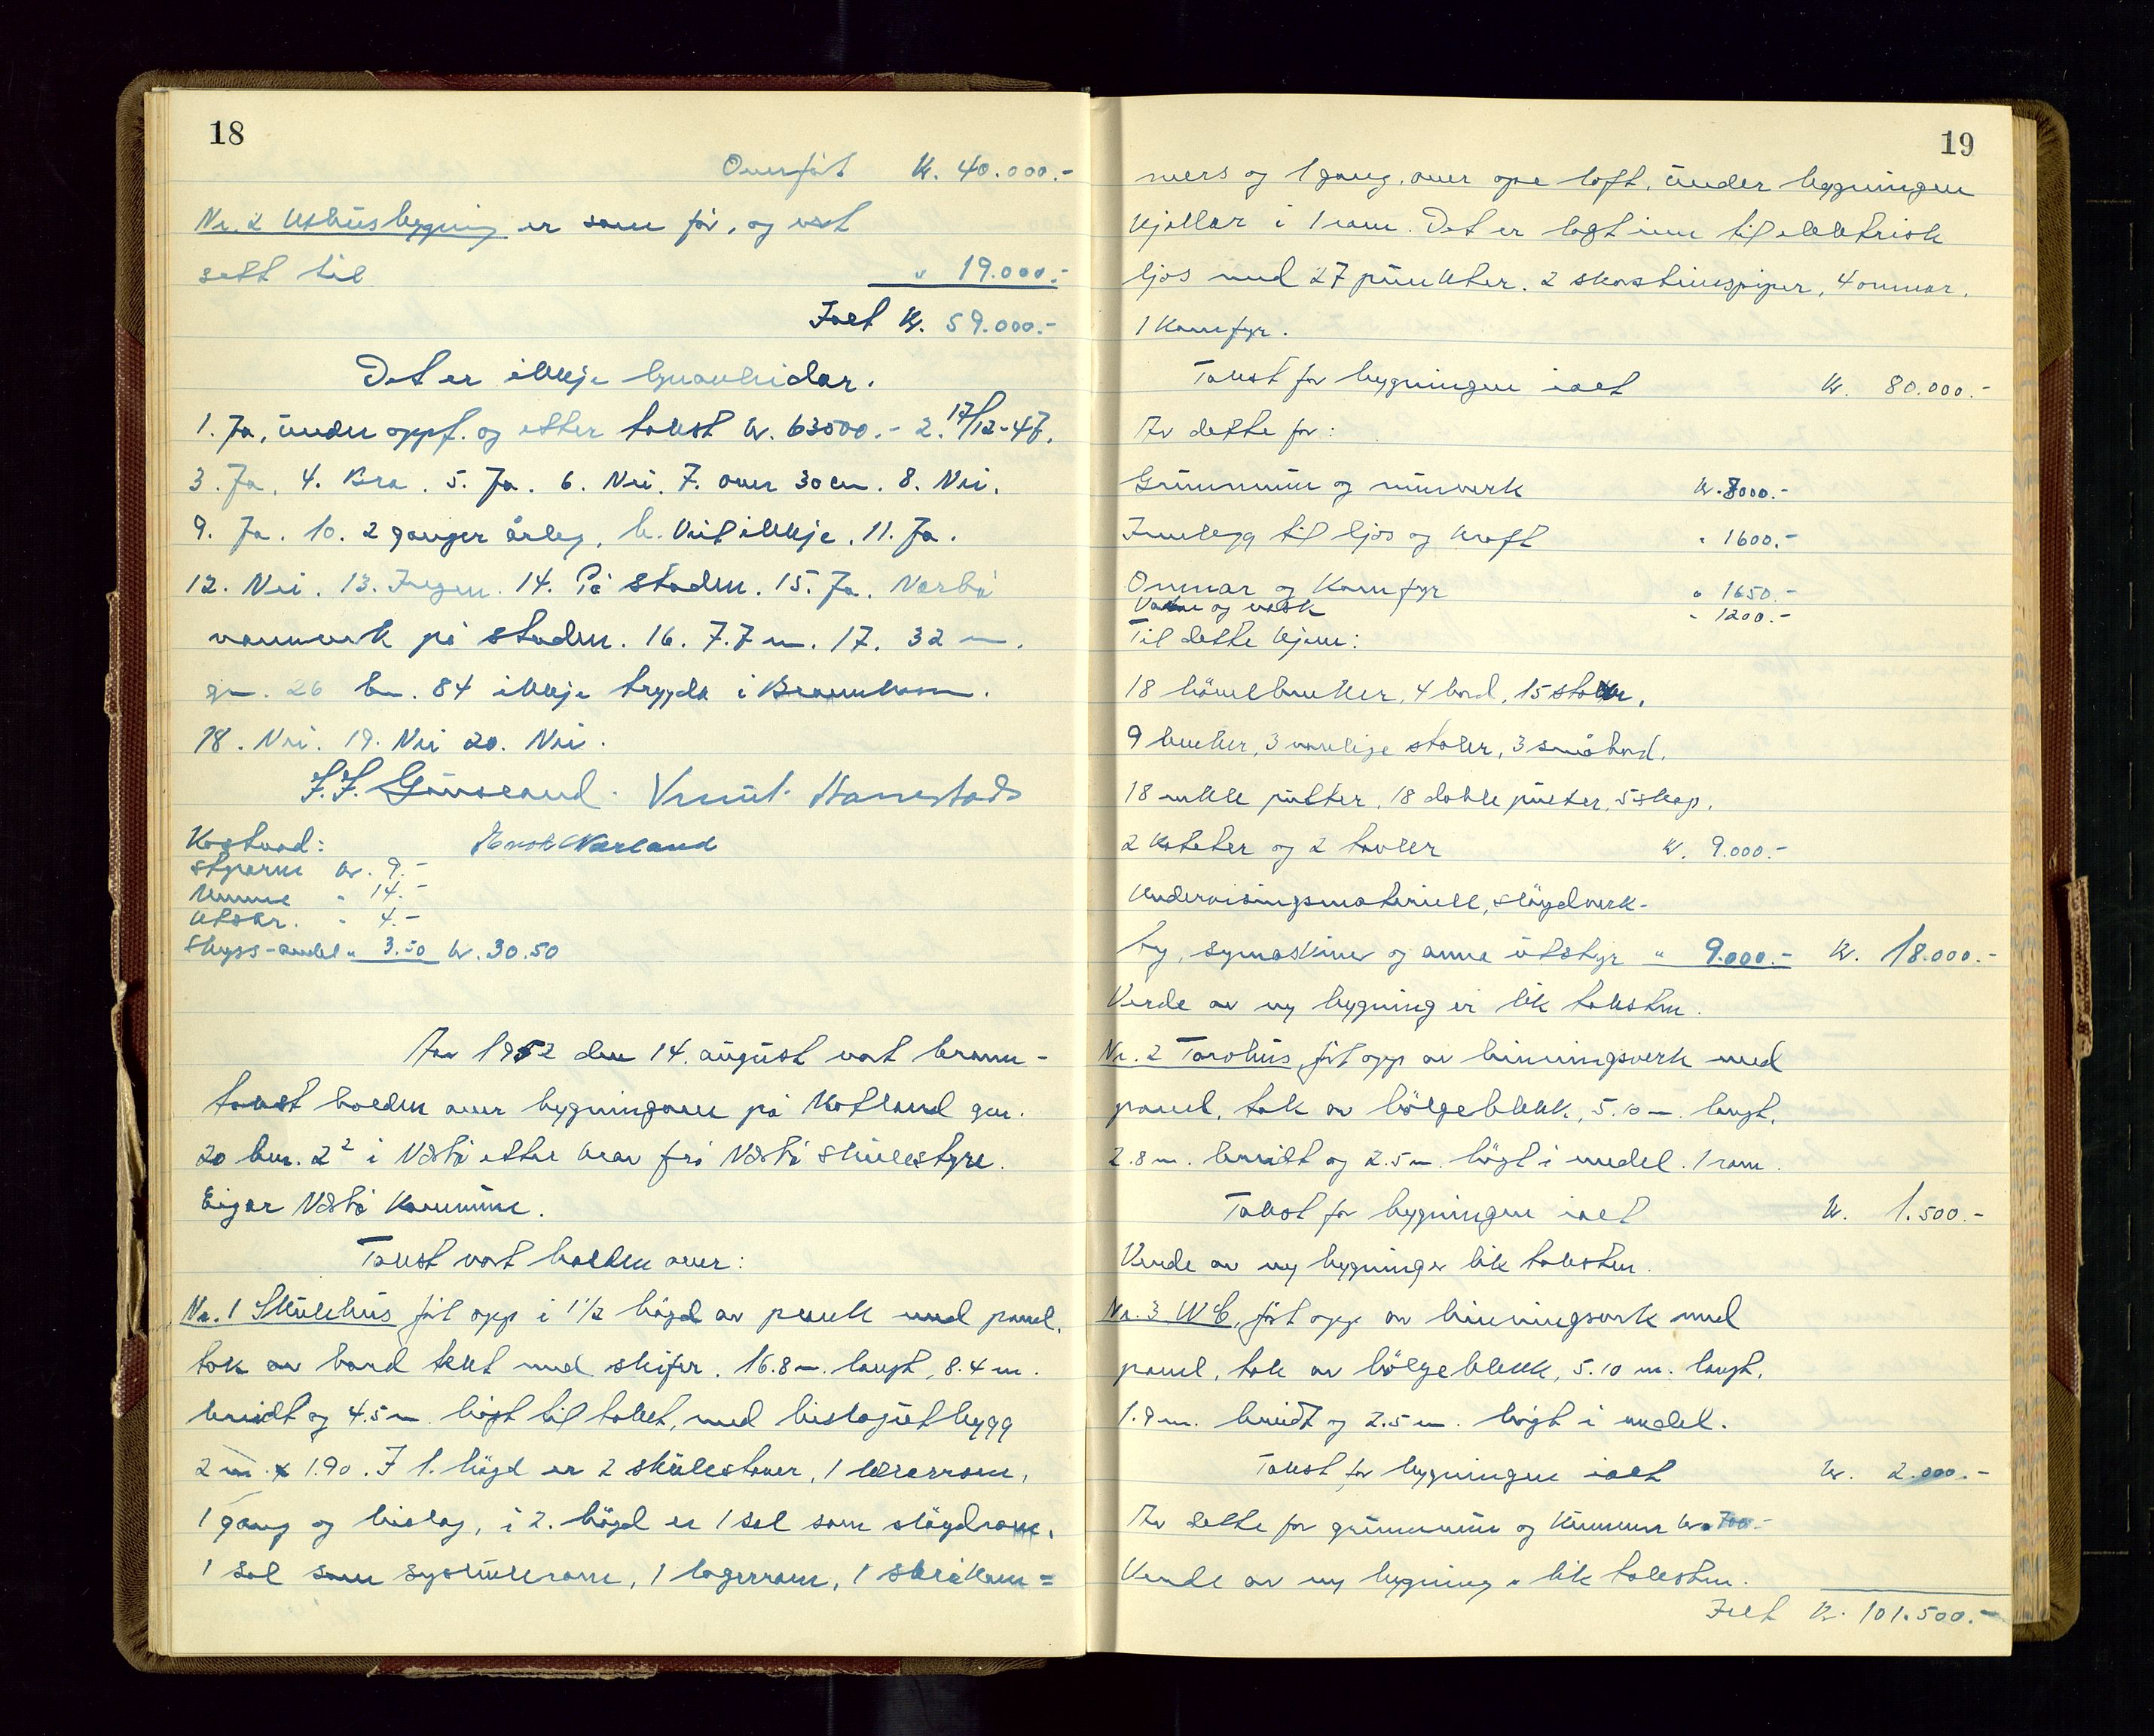 18
Overført Kr. 40.000.-
Nr. 2 Uthusbygning er som før, og vert
sett til " 19.000.-
Ialt Kr. 59.000.-
Det er ikkje bruavhidar.
1. Ja, under oppf. og etter takst kr. 63000.- 2. 17/12-47.
3. Ja. 4. Bra. 5. Ja. 6. Nei. 7. over 30 cm. 8. Nei.
9. Ja. 10. 2 ganger årleg, b. Veit ikkje. 11. Ja.
12. Nei. 13. Ingen. 14. På staden. 15. Ja. Nærbø
vannverk på staden. 16. 7.7 m. 17. 32 m.
gn. 26 bn. 84 ikkje trygda i Brannkassen.
18. Nei. 19. Nei 20. Nei.
Knut Hanastads
Kostnad: Narland
Styraren kr. 9.-
Menne " 14.-
Utskr. " 4.-
Skyss-andel " 3.50 kr. 30.50
Aar 1952 den 14. august vart brann-
takst halden over bygningane på Motland gn.
20 bn. 2² i Nærbø etter krav frå Nærbø skulestyre.
Eigar Nærbø Kommune.
Takst vart halden over:
Nr. 1 Skulehus ført opp i 1 1/2 høgd av plank med panel.
tak av bord tekt med skifer. 16.8 m. langt, 8.4 m.
breidt og 4.5 m. høgt til taket, med bislagutbygg
2 m. x 1.90. I 1. høgd er 2 skulestover, 1 lærerrom,
1 gang og bislag, i 2. høgd er 1 sal som sløydrom,
1 sal som syskulerom, 1 lagerrom, 1 skråkam=
19
mers og 1 gang, over ope loft, under bygningen
kjellar i 1 rom. Det er lagt inn til elektrisk
ljos med 27 punkter. 2 skorsteinspiper, 4 omnar.
1 Komfyr.
Takst for bygningen ialt Kr. 80.000.-
Av dette for:
Grunnmur og murverk kr. 8000.-
Innlegg til ljos og kraft " 1600.-
Omnar og Komfyr " 1650.-
Vatn og vask " 1200.-
Til dette kjem:
18 høvelbenker, 4 bord, 15 stoler,
9 benker, 3 vanlige stoler, 3 småbord,
18 enkle pulter, 18 doble pulter, 5 skap,
2 Kateter og 2 tavler kr. 9.000.-
Undervisingsmateriell, sløydverk-
ty, symaskiner og anna utstyr " 9.000.- Kr. 18.000.-
Verde av ny bygning er lik taksten.
Nr. 2 Torvhus, ført opp av bindingsverk med
panel, tak av bølgeblekk, 5.10 m. langt,
2.8 m. breidt og 2.5 m. høgt i medel. 1 rom.
Takst for bygningen ialt Kr. 1.500.-
Verde av ny bygning er lik taksten.
Nr. 3 WC, ført opp av bindingsverk med
panel, tak av bølgeblekk, 5.10 m. langt,
1.9 m. breidt og 2.5 m. høgt i medel.
Takst for bygningen ialt Kr. 2.000.-
Av dette for grunnmur og kummer kr. 700.-
Verde av ny bygning " lik taksten.
Ialt Kr. 101.500.-